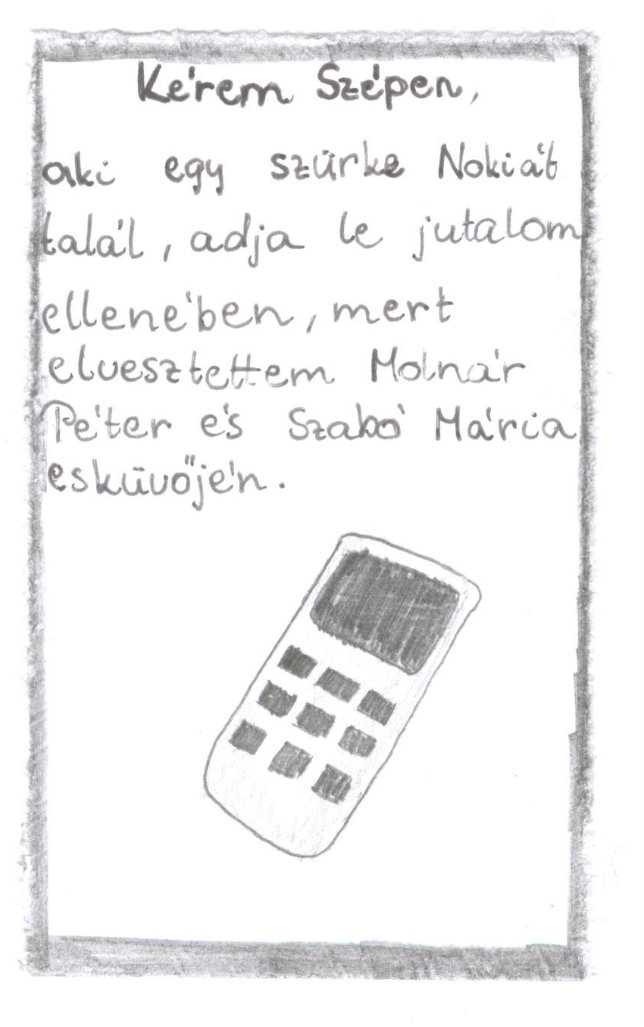 Kérem Szépen,
aki egy szürke Nokiát
talál, adja le jutalom
ellenében, mert
elvesztettem Molnár
Péter és Szabó Mária
esküvőjén.